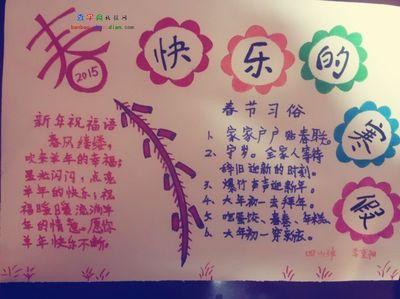 查字典板报网
春
2015
快乐的
寒
假
新年祝福语
春风缕缕,
吹来羊年的幸福;
星光闪闪,点亮
羊年的快乐;祝
福暖暖,流淌羊
年的情意。愿你
羊年快乐不断。
春节习俗
1、家家户户贴春联。
2、守岁。全家人等待
辞旧迎新的时刻。
3、爆竹声声迎新年。
4、大年初一去拜年。
5、吃蛋饺、春卷、年糕。
6、大年初一穿新衣。